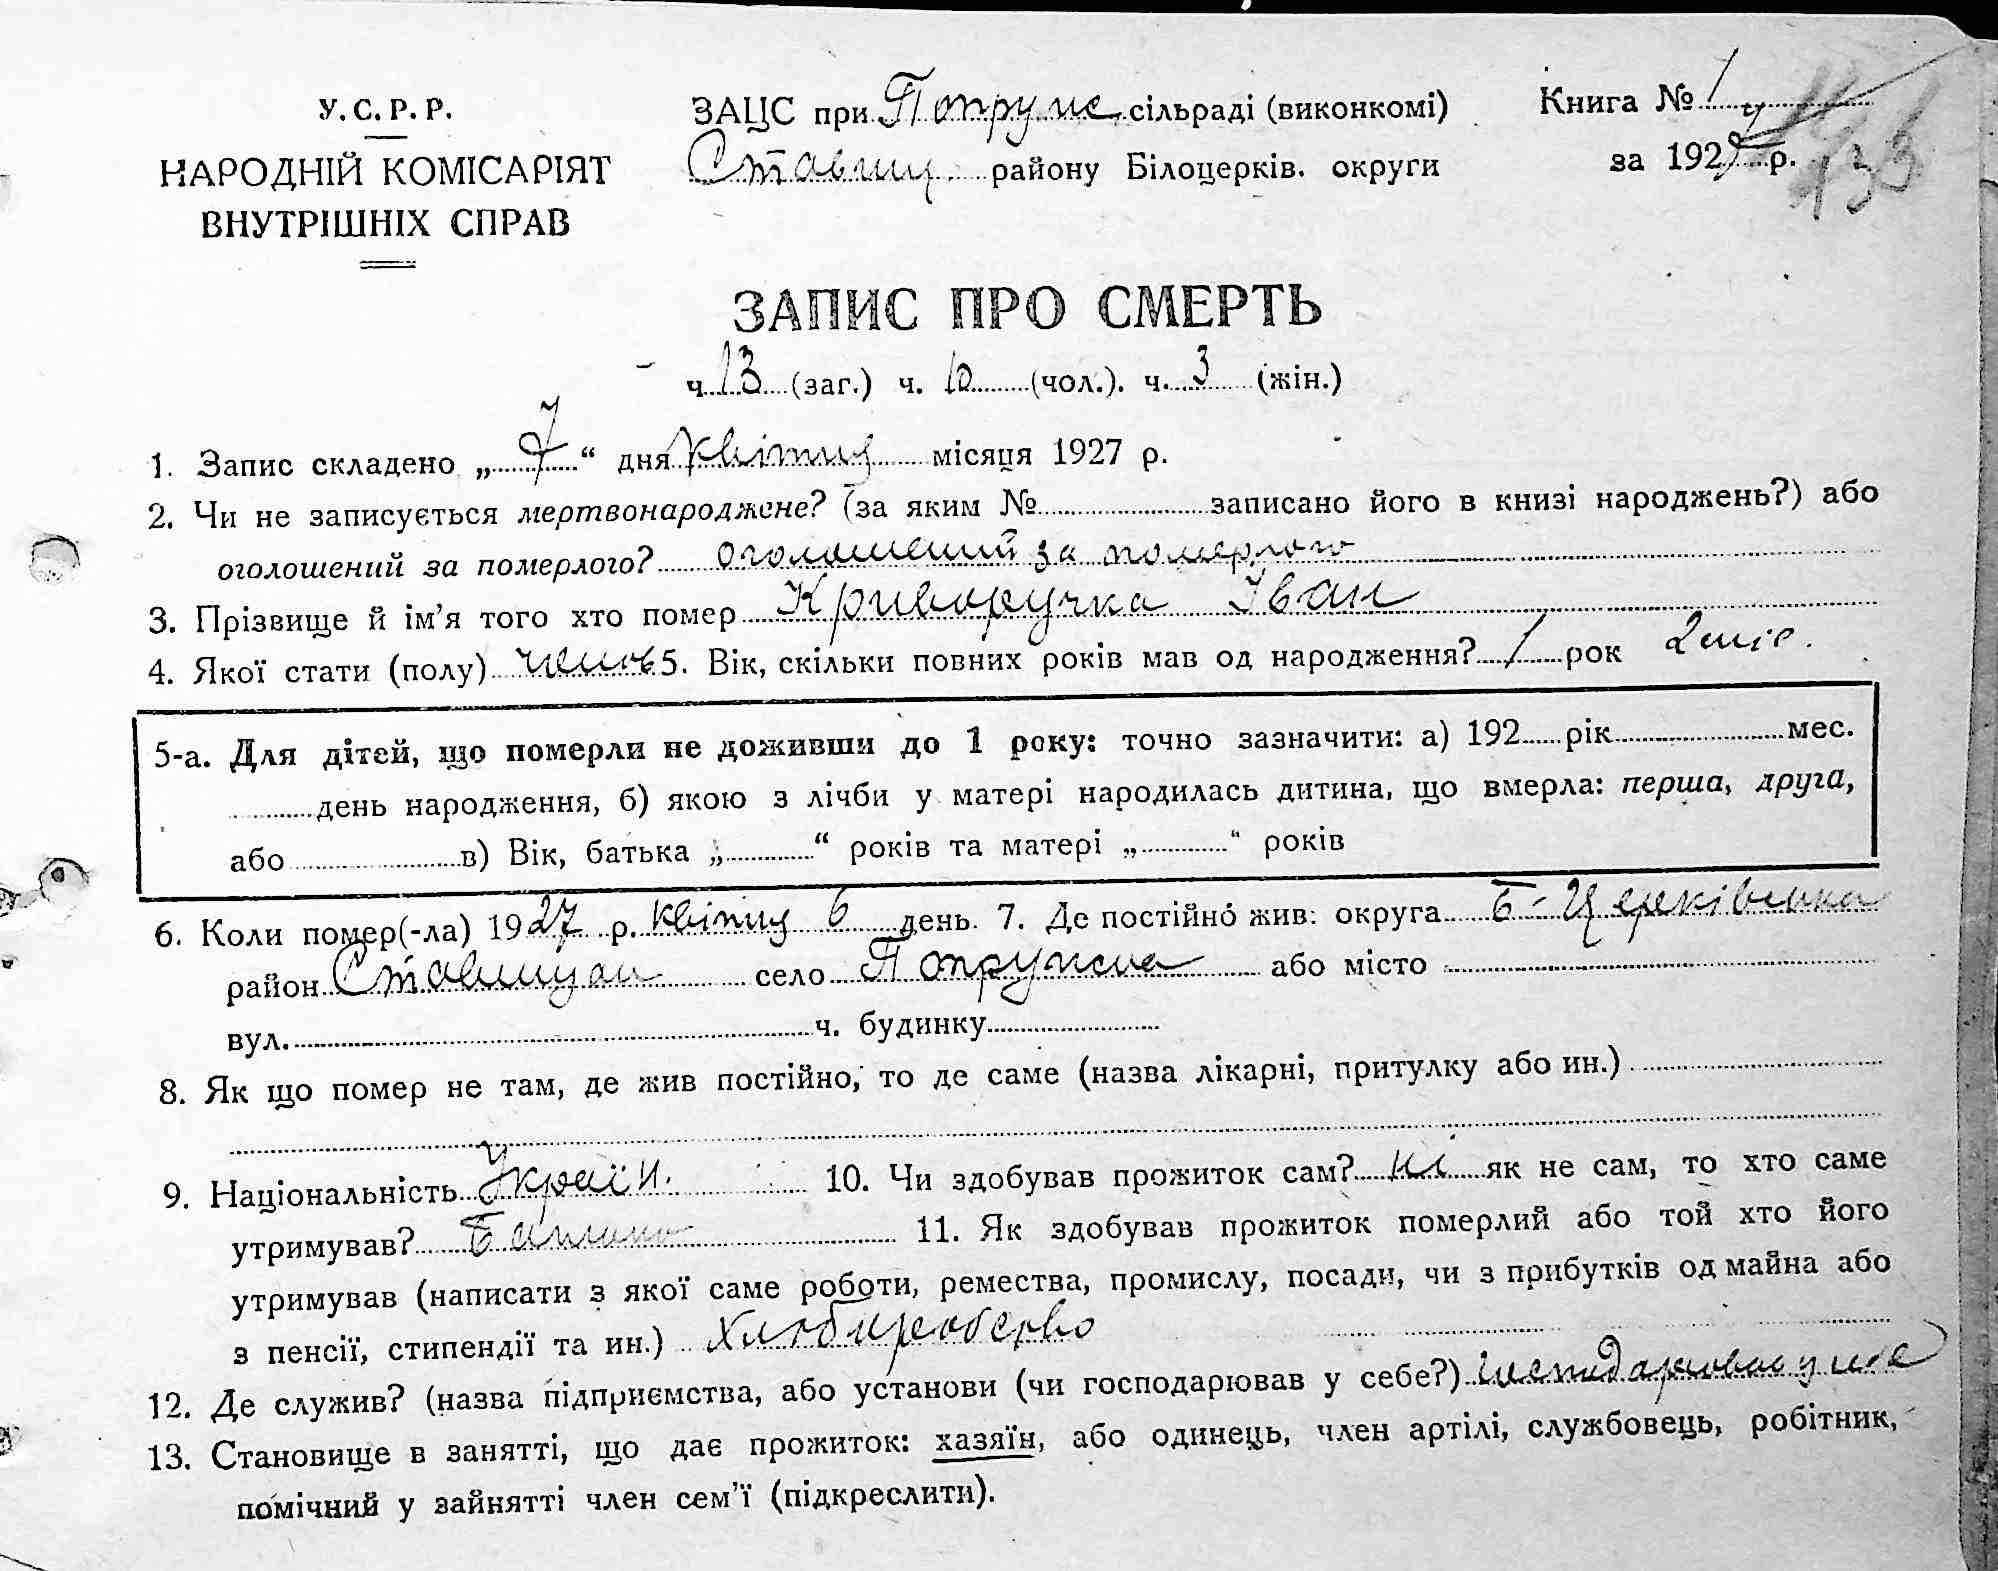 У.С.Р.Р.
НАРОДНІЙ КОМІСАРІЯТ
ВНУТРІШНІХ СПРАВ
ЗАЦС при Попруже. сільраді (виконкомі)
Ставищ. району Білоцерків. округи
Книга № 1
за 1927 р.
133
ЗАПИС ПРО СМЕРТЬ
ч. 13 (заг.) ч. 10 (чол.). ч. 3 (жін.)
1. Запис складено „ 7 “ дня квітня місяця 1927 р.
2. Чи не записується мертвонароджене? (за яким № записано його в книзі народжень?) або
оголошений за померлого? оголошений за померлого
3. Прізвище й ім’я того хто помер Криворучка Іван
4. Якої стати (полу) чолов 5. Вік, скільки повних років мав од народження? 1 рок 2 міс.
5-а. Для дітей, що померли не доживши до 1 року: точно зазначити: а) 192 рік мес.
день народження, б) якою з лічби у матері народилась дитина, що вмерла: перша, друга,
або в) Вік, батька „ “ років та матері „ “ років
6. Коли помер(-ла) 1927 р. квітня 6 день. 7. Де постійно жив: округа Б-Церківська
район Ставищан село Попружна або місто
вул. ч. будинку
8. Як що помер не там, де жив постійно, то де саме (назва лікарні, притулку або ин.)
9. Національність Україн. 10. Чи здобував прожиток сам? ні як не сам, то хто саме
утримував? Батько 11. Як здобував прожиток померлий або той хто його
утримував (написати з якої саме роботи, ремества, промислу, посади, чи з прибутків од майна або
з пенсії, стипендії та ин.) хліборобство
12. Де служив? (назва підприємства, або установи (чи господарював у себе?)
13. Становище в занятті, що дає прожиток: хазяїн, або одинець, член артілі, службовець, робітник,
помічний у зайнятті член сем’ї (підкреслити).